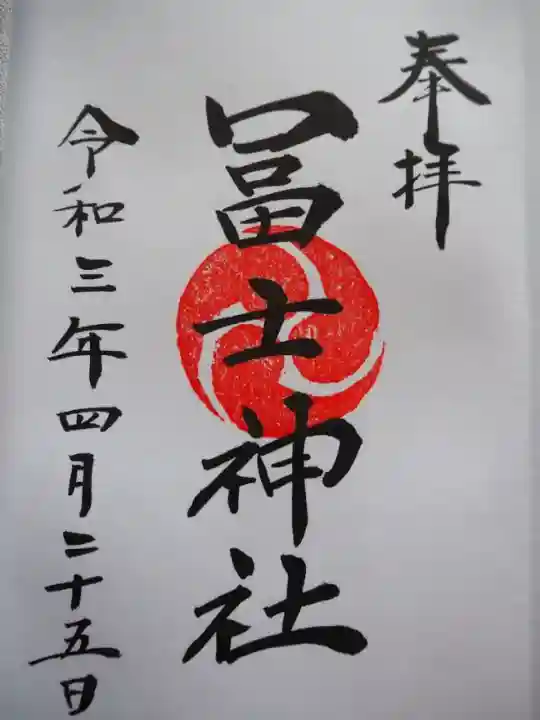 奉拝
冨士神社
令和三年四月二十五日